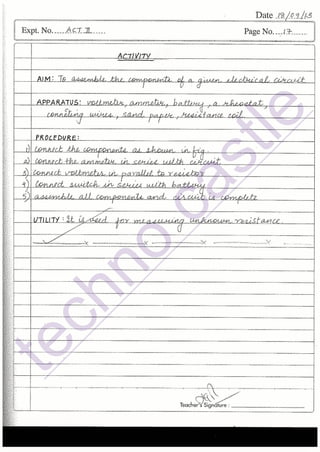 Date 19/09/13
Expt. No. ACT. II
Page No. 17
ACTIVITY
AIM: To assemble the components of a given electrical circuit
APPARATUS: voltmeter, ammeter, battery, a rheostat,
conneting wires, sand paper, resistance coil.
PROCEDURE:
1) connect the components as shown in fig
2) connect the ammeter in series with circuit.
3) connect voltmeter in parallel to resistor
4) Connect switch in series with battery
5) assemble all components and circuit is complete
UTILITY: It is used for measuring unknown resistance.
techno castle
Teacher's Signature: